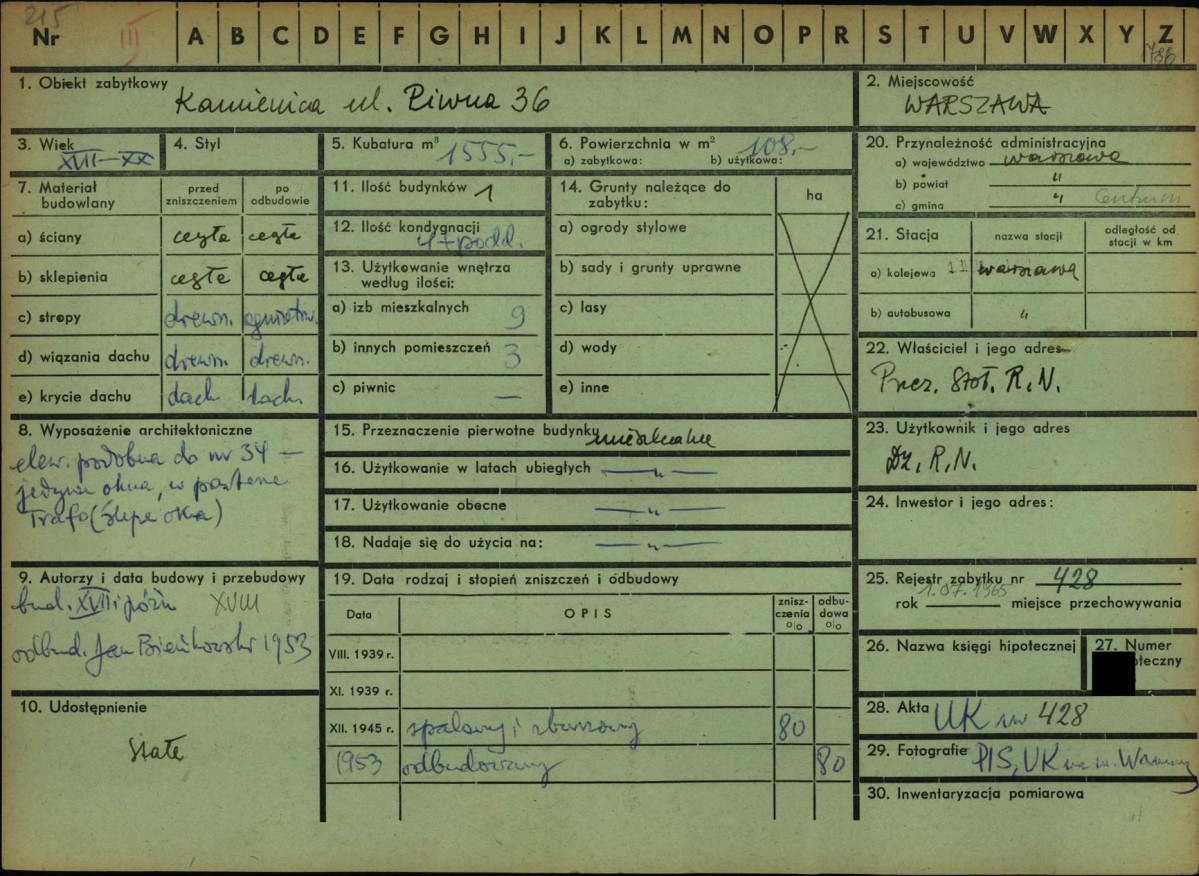 215
Nr III A B C D E F G H I J K L M N O P R S T U V W X Y Z
786
1. Obiekt zabytkowy
Kamienica ul. Piwna 36
2. Miejscowość
WARSZAWA
3. Wiek
XVII-XX
4. Styl
5. Kubatura m³
1555,-
6. Powierzchnia w m²
a) zabytkowa: b) użytkowa:
108,-
20. Przynależność administracyjna
a) województwo warszawa
b) powiat "
c) gmina " Centrum
7. Materiał budowlany
przed zniszczeniem
po odbudowie
a) ściany cegła cegła
b) sklepienia cegła cegła
c) stropy drewn. ogniotrw.
d) wiązania dachu drewn. drewn.
e) krycie dachu dach. dach.
11. Ilość budynków 1
12. Ilość kondygnacji
4+podd.
13. Użytkowanie wnętrza
według ilości:
a) izb mieszkalnych 9
b) innych pomieszczeń 3
c) piwnic —
14. Grunty należące do
zabytku:
ha
a) ogrody stylowe
b) sady i grunty uprawne
c) lasy
d) wody
e) inne
21. Stacja
nazwa stacji
odległość od
stacji w km
a) kolejowa warszawa
b) autobusowa "
22. Właściciel i jego adres
Prez. Stoł. R.N.
8. Wyposażenie architektoniczne
elew. podobna do nr 34 —
jedynie okna, w parterze
Trafo (ślepe okna)
15. Przeznaczenie pierwotne budynku mieszkalne
16. Użytkowanie w latach ubiegłych — " —
17. Użytkowanie obecne — " —
18. Nadaje się do użycia na: — " —
23. Użytkownik i jego adres
Dz. R.N.
24. Inwestor i jego adres:
9. Autorzy i data budowy i przebudowy
bud. XVII i późn XVIII
odbud. Jan Bieńkowski 1953
19. Data rodzaj i stopień zniszczeń i odbudowy
Data
OPIS
znisz-
czenia
o|o
odbu-
dowa
o|o
VIII. 1939 r.
XI. 1939 r.
XII. 1945 r. spalony i zburzony 80
1953 odbudowany 80
25. Rejestr zabytku nr 428
1.07.1965
rok miejsce przechowywania
26. Nazwa księgi hipotecznej
27. Numer
oteczny
10. Udostępnienie
Stałe
28. Akta UK nr 428
29. Fotografie PIS, UK
30. Inwentaryzacja pomiarowa